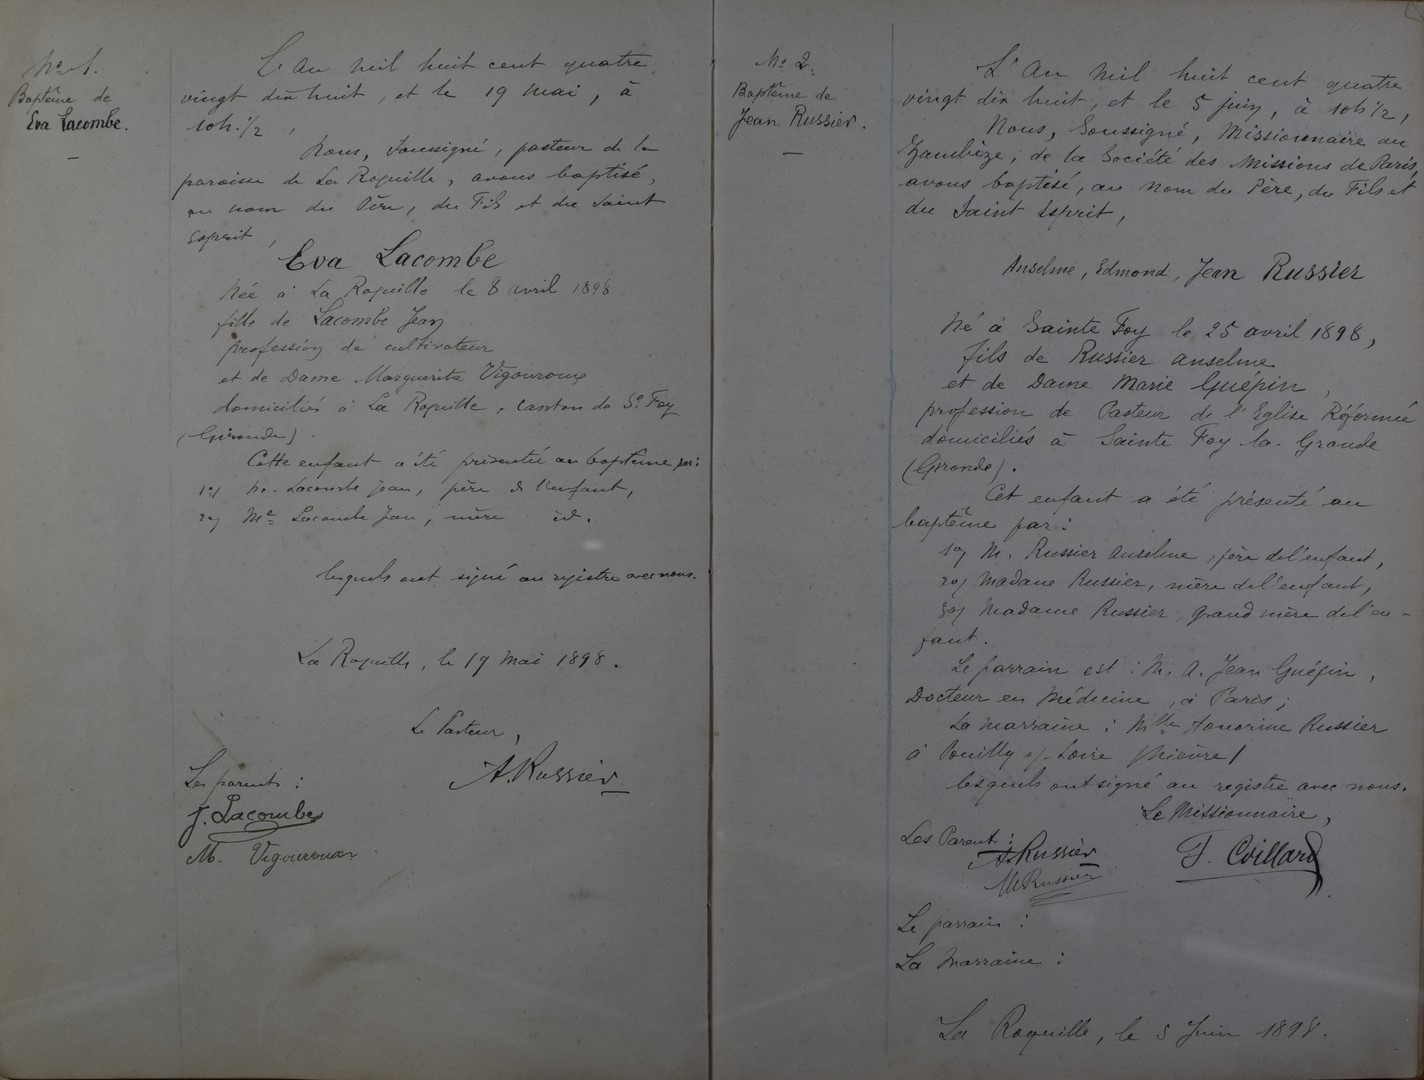 No 1.
Baptême de
Eva Lacombe.
L'An mil huit cent quatre
vingt dix huit, et le 19 mai, à
10h. 1/2,
Nous, soussigné, pasteur de la
paroisse de La Roquille, avons baptisé,
au nom du Père, du Fils et du Saint
Esprit,
Eva Lacombe
Née à La Roquille le 8 avril 1898
fille de Lacombe Jean
profession de cultivateur
et de Dame Marguerite Vigouroux
domiciliés à La Roquille, canton de Ste Foy
(Gironde).
Cette enfant a été présentée au baptême par:
1o/ M. Lacombe Jean, père de l'enfant,
2o/ Me Lacombe Jean, mère id.
lesquels ont signé au registre avec nous.
La Roquille, le 19 mai 1898.
Le Pasteur,
A. Russier
Les parents :
J. Lacombe
M. Vigouroux
No 2.
Baptême de
Jean Russier.
L'An mil huit cent quatre
vingt dix huit, et le 5 juin, à 10h 1/2,
Nous, Soussigné, Missionnaire au
Zambèze, de la Société des Missions de Paris,
avons baptisé, au nom du Père, du Fils et
du Saint Esprit,
Anselme, Edmond, Jean Russier
Né à Sainte Foy le 25 avril 1898,
fils de Russier Anselme
et de Dame Marie Guépin,
profession de Pasteur de l'Eglise Réformée
domiciliés à Sainte Foy la-Grande
(Gironde).
Cet enfant a été présenté au
baptême par :
1o/ M. Russier Anselme, père de l'enfant,
2o/ Madame Russier, mère de l'enfant,
3o/ Madame Russier, grand mère de l'en-
fant.
Le parrain est : M. A. Jean Guépin,
Docteur en Médecine, à Paris ;
La marraine : Mlle Honorine Russier
à Pouilly s/- Loire (Nièvre)
lesquels ont signé au registre avec nous.
Le Missionnaire,
Les Parent :
A. Russier
F. Coillard
M Russier
Le parrain :
La Marraine :
La Roquille, le 5 Juin 1898.